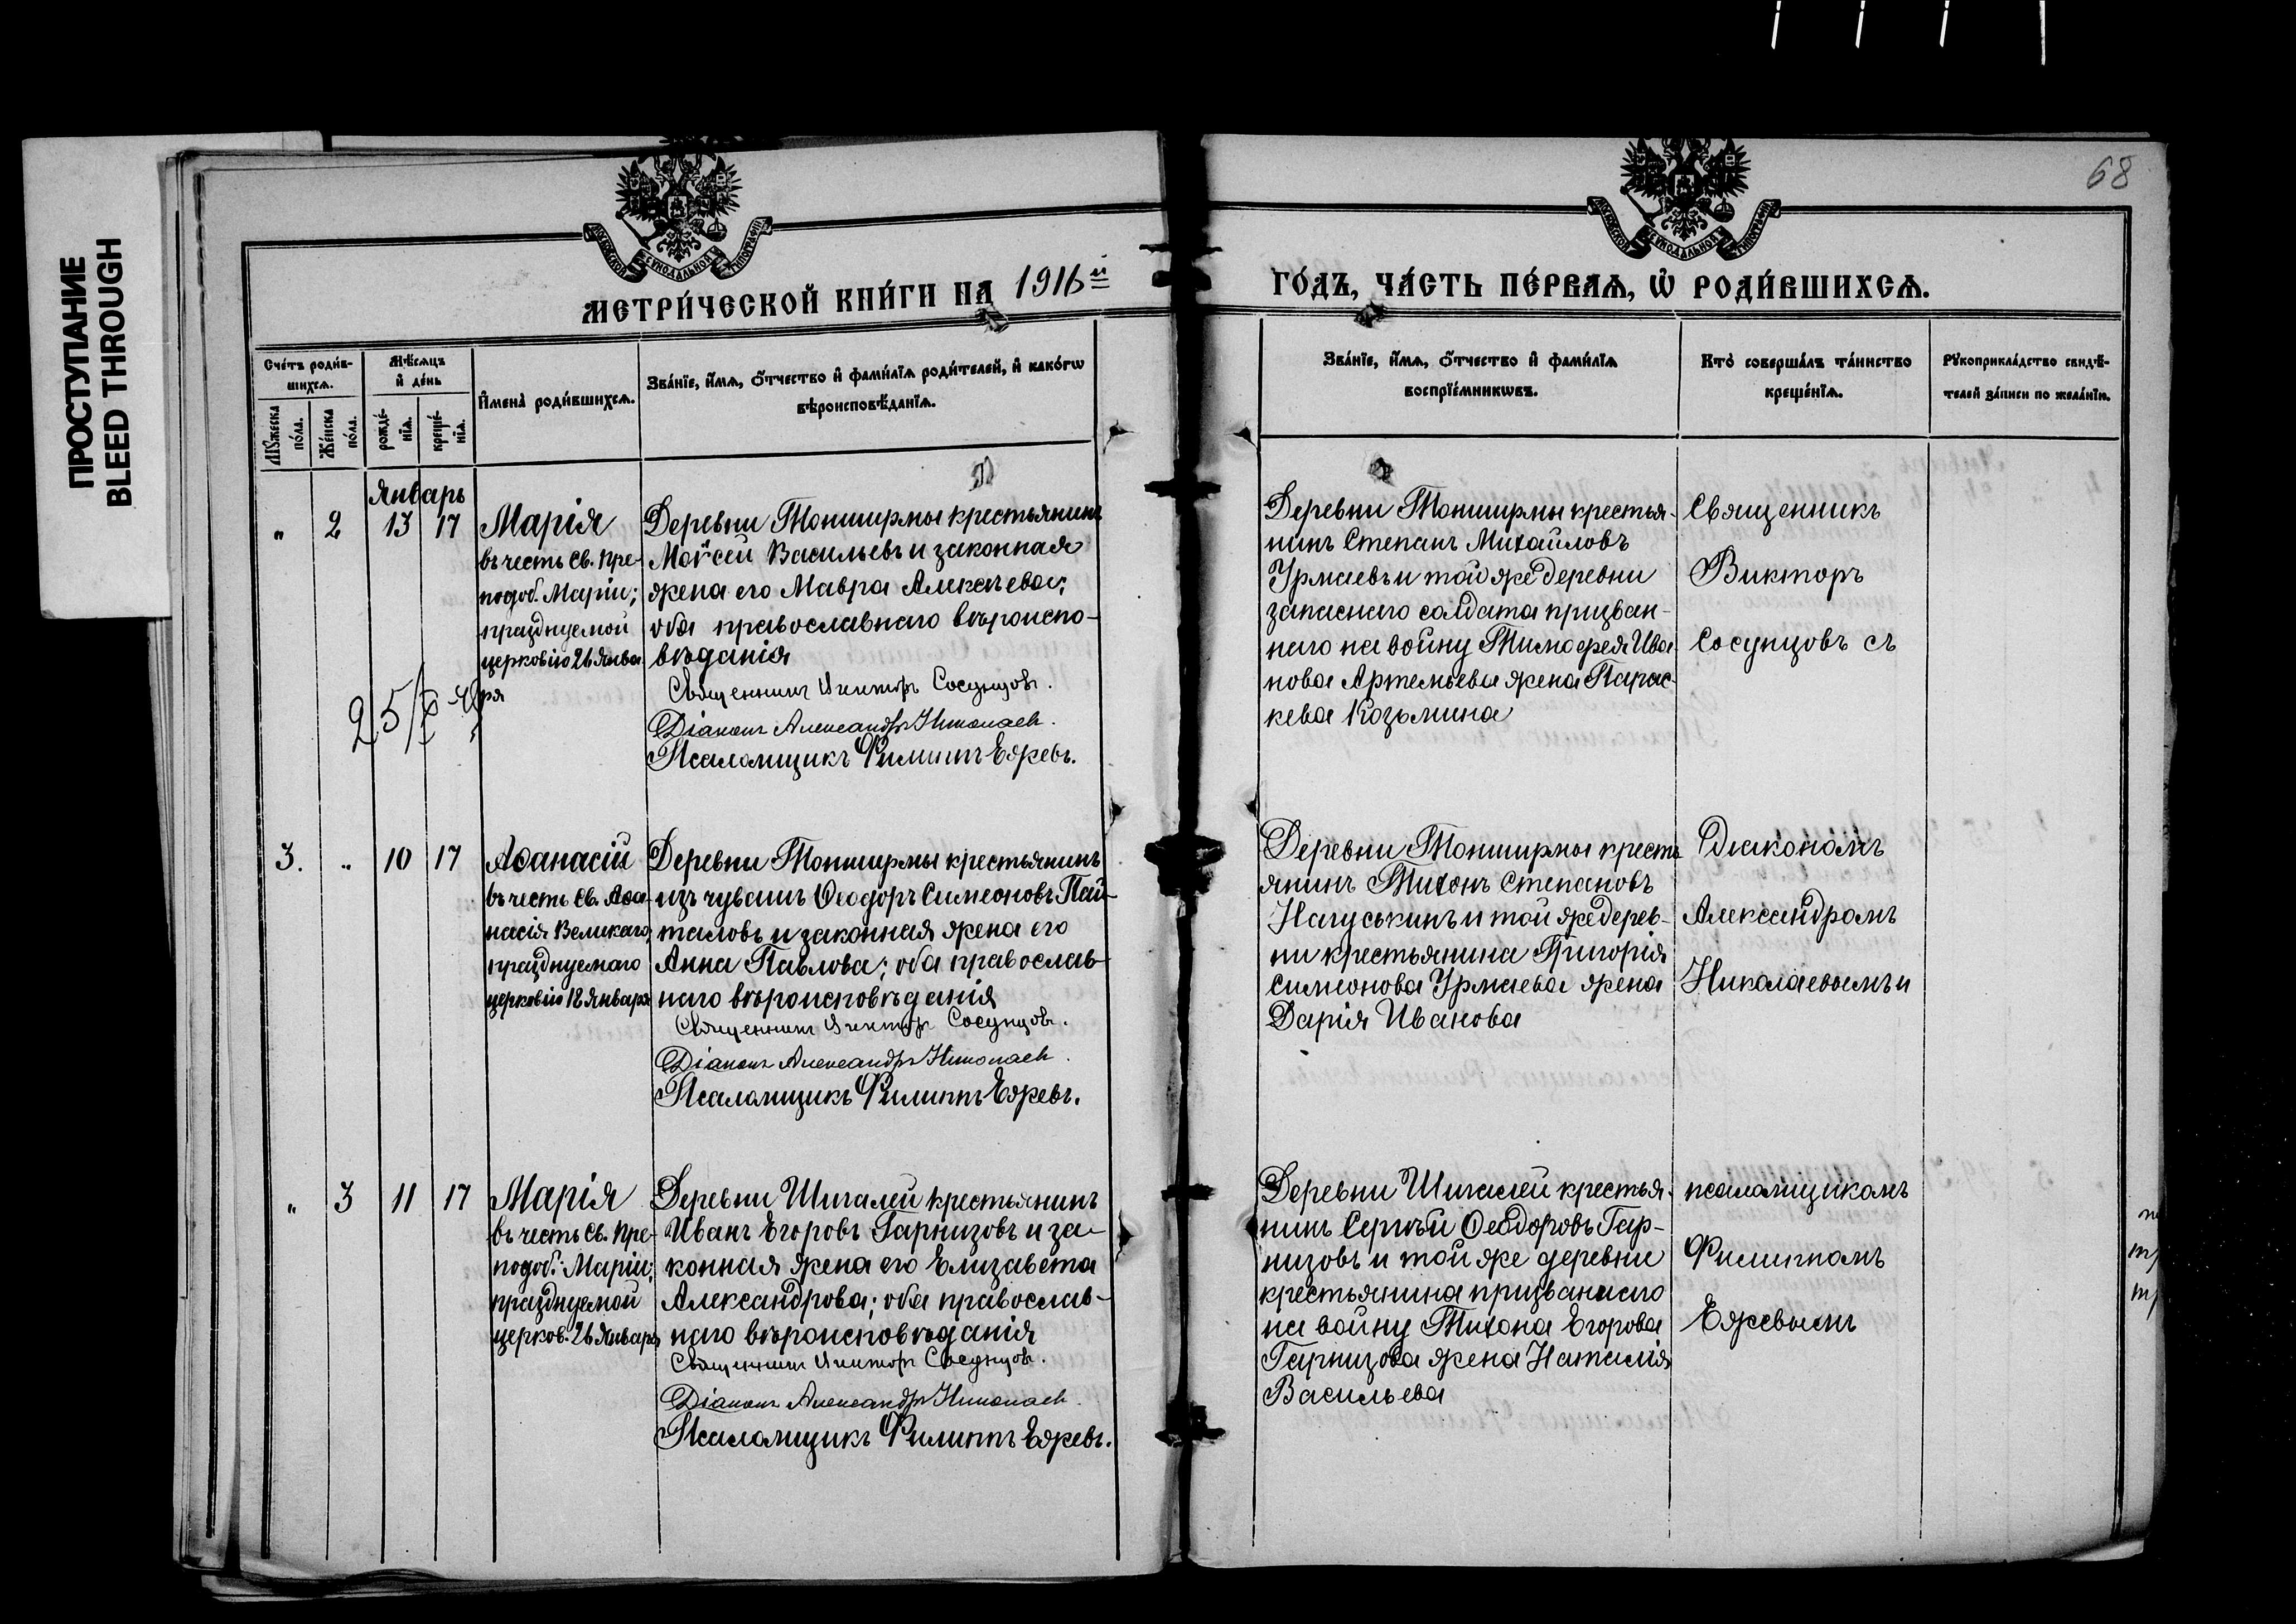 ПРОСТУПАНИЕ
BLEED THROUGH
68
МОСКОВСКОЙ СУНОДАЛЬНОЙ ТИПОГРАФІИ
МОСКОВСКОЙ СУНОДАЛЬНОЙ ТИПОГРАФІИ
МЕТРИ́ЧЕСКОЙ КНИ́ГИ НА 1916й
ГО́ДЪ, ЧА́СТЬ ПЕ́РВАѦ, Ѡ҆ РОДИ́ВШИХСѦ.
Сче́тъ роди́в-
шихсѧ.
Мѣ́сѧцъ
и҆ де́нь
И҆мена̀ роди́вшихсѧ.
Зва́нїе, и҆́мѧ, ѻ҆́тчество и҆ фами́лїѧ роди́телей, и҆ како́гѡ
вѣроисповѣ́данїѧ.
Мꙋ́жеска
по́ла.
Же́нска
по́ла.
рожде́-
нїѧ.
креще́-
нїѧ.
Зва́нїе, и҆́мѧ, ѻ҆́тчество и҆ фами́лїѧ
воспрїе́мникѡвъ.
Кто̀ соверша́лъ та́инство
креще́нїѧ.
Рꙋкоприкла́дство свидѣ́-
телей за́писи по жела́нїю.
Январь
" 2 13 17
Марія
въ честь св. пре-
подоб. Маріи;
празднуемой
церковію 26 Янва
ря
Деревни Тонширмы крестьянинъ
Моѵсей Васильевъ и законная
жена его Мавра Алексѣева;
оба православнаго вѣроиспо-
вѣданія
Священникъ Викторъ Сосунцовъ.
Діаконъ Александръ Николаевъ.
Псаломщикъ Филиппъ Ежевъ.
Деревни Тонширмы крестья-
нинъ Степанъ Михайловъ
Урмаевъ и той же деревни
запаснаго солдата призван-
наго на войну Тимофея Ива
нова Артемьева жена Парас-
кева Козьмина
Священникъ
Викторъ
Сосунцовъ съ
3. " 10 17
Аѳанасій
въ честь св. Аѳа-
насія Великаго,
празднуемаго
церковію 18 Января
Деревни Тонширмы крестьянинъ
изъ чувашъ Ѳеодоръ Симеоновъ Пай-
таловъ и законная жена его
Анна Павлова; оба православ-
наго вѣроисповѣданія
Священникъ Викторъ Сосунцовъ.
Діаконъ Александръ Николаевъ.
Псаломщикъ Филиппъ Ежевъ.
Деревни Тонширмы кресть
янинъ Тихонъ Степановъ
Нагуськинъ и той же дерев-
ни крестьянина Григорія
Симеонова Урмаева жена
Дарія Иванова
Діакономъ
Александромъ
Николаевымъ и
" 3 11 17
Марія
въ честь св. пре-
подоб. Маріи;
празднуемой
церков. 26 Января
Деревни Шигалей крестьянинъ
Иванъ Егоровъ Гарнизовъ и за-
конная жена его Елизавета
Александрова; оба православ-
наго вѣроисповѣданія
Священникъ Викторъ Сосунцовъ.
Діаконъ Александръ Николаевъ.
Псаломщикъ Филиппъ Ежевъ.
Деревни Шигалей крестья-
нинъ Сергѣй Ѳеодоровъ Гар-
низовъ и той же деревни
крестьянина призваннаго
на войну Тихона Егорова
Гарнизова жена Наталія
Васильева
псаломщикомъ
Филиппомъ
Ежевымъ